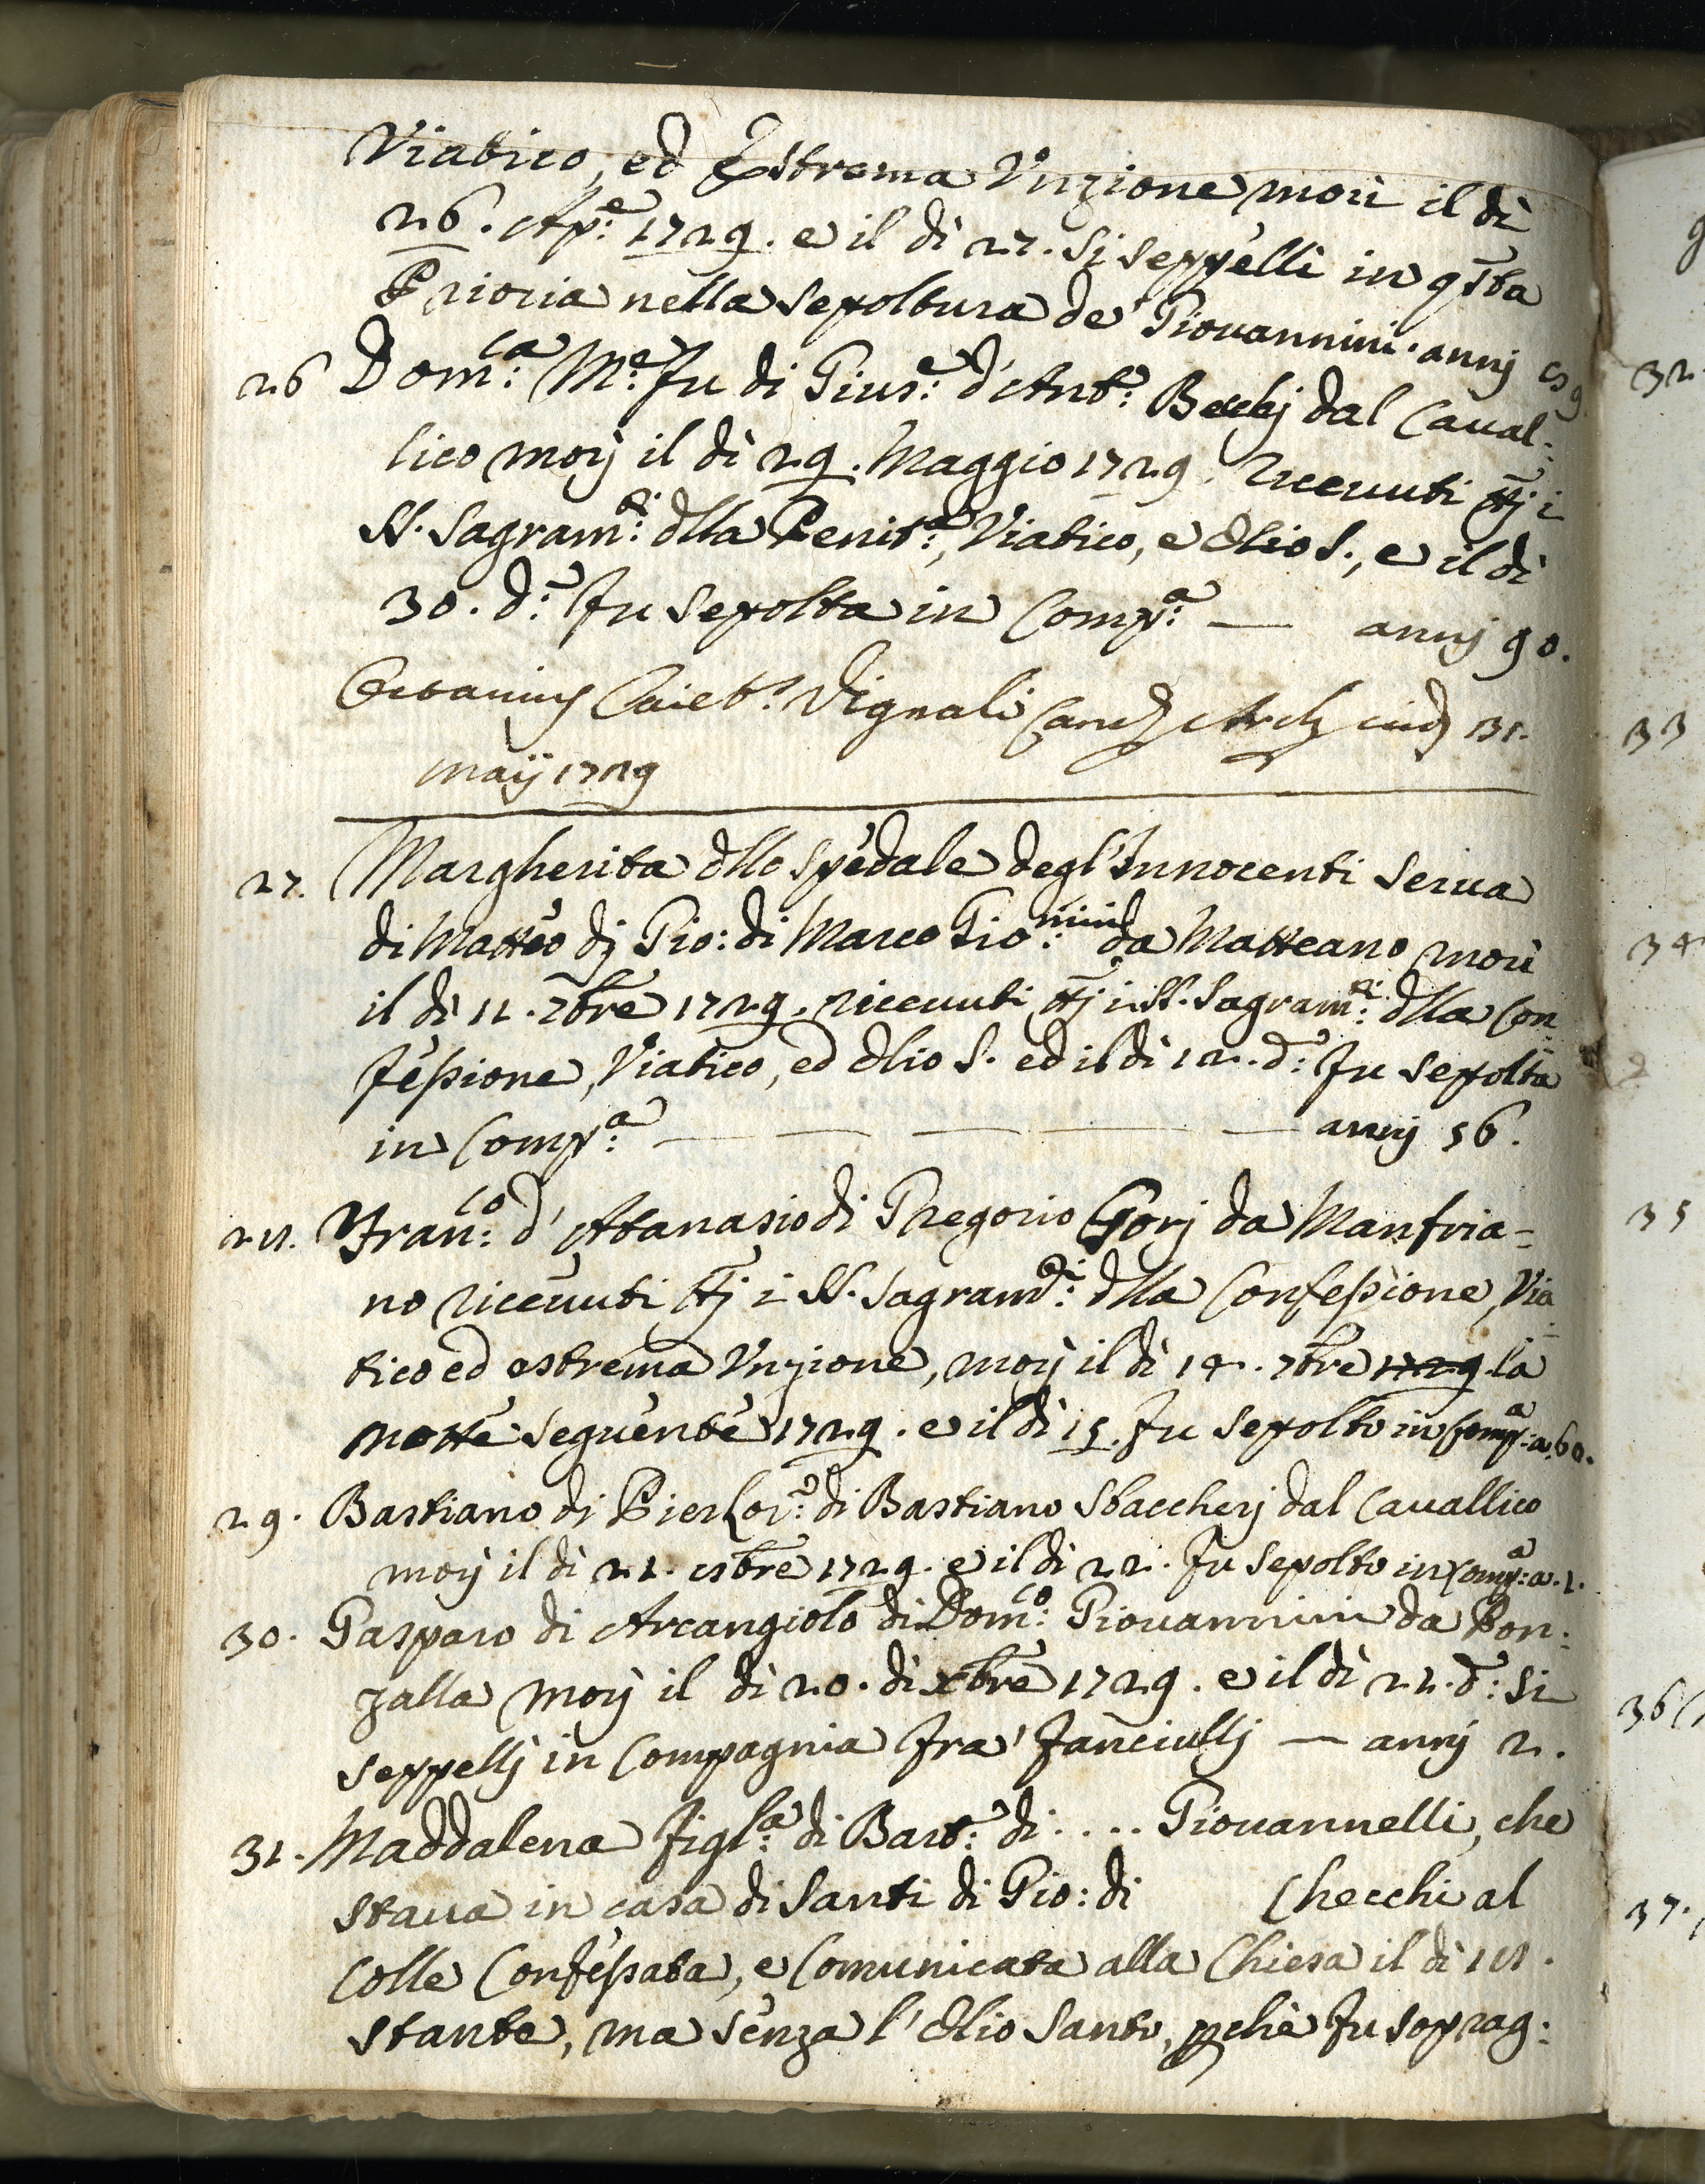 Viatico, ed Estrema Vnzione morì il dì
26. Ap:e 1729. e il dì 27. si seppellì in qsta
Prioria nella sepoltura de' Giouannini. annj
26 Dom:ca M:e fu di Gius:e d'Ant:o Becchj dal Caual:
lico morj il dì 29. Maggio 1729. riceuuti ttj i
SS. Sagram:ti dlla Penit:a, Viatico, e Olio S., e il dì
30. d:o fu sepolta in Comp:a — annj 90.
Vignali Canc Arch 31.
maij 1729
27. Margherita dllo spedale degl'Innocenti serua
di Matteo dj Gio: di Marco Gio:nnini da Matteano morì
il dì 11. 7bre 1729. riceuuti ttj i SS. Sagram:ti dlla Con
fessione, Viatico, ed Olio S. ed il dì 12. d:o fu sepolta
in Comp:a — — — — annj 56.
28. Fran:co d'Atanasio di Ghegorio Gorj da Manfria-
no riceuuti ttj i SS. Sagram:ti dlla Confessione, Via
tico ed estrema Vnzione, morj il dì 14. 7bre 1729. la
notte seguente 1729. e il dì 15. fu sepolto in Comp:a a. 60.
29. Bastiano di Pier Lor:o di Bastiano Staccherj dal Cauallico
morj il dì 21. 9bre 1729. e il dì 22. fu sepolto in Comp:a a. 1.
30. Gasparo di Arcangiolo di Dom:co Giouannini da Bon:
zalla morj il dì 20. di xbre 1729. e il dì 21. d:o si
seppellj in Compagnia fra' fanciullj — annj 2.
31. Maddalena figl:la di Bart:o di .... Giouannelli, che
staua in casa di Santi di Gio: di Checchi al
Colle Confessata, e Comunicata alla Chiesa il dì 18.
stante, ma senza l'Olio Santo, pche fu soprag:
32.
33
34
35
36
37.